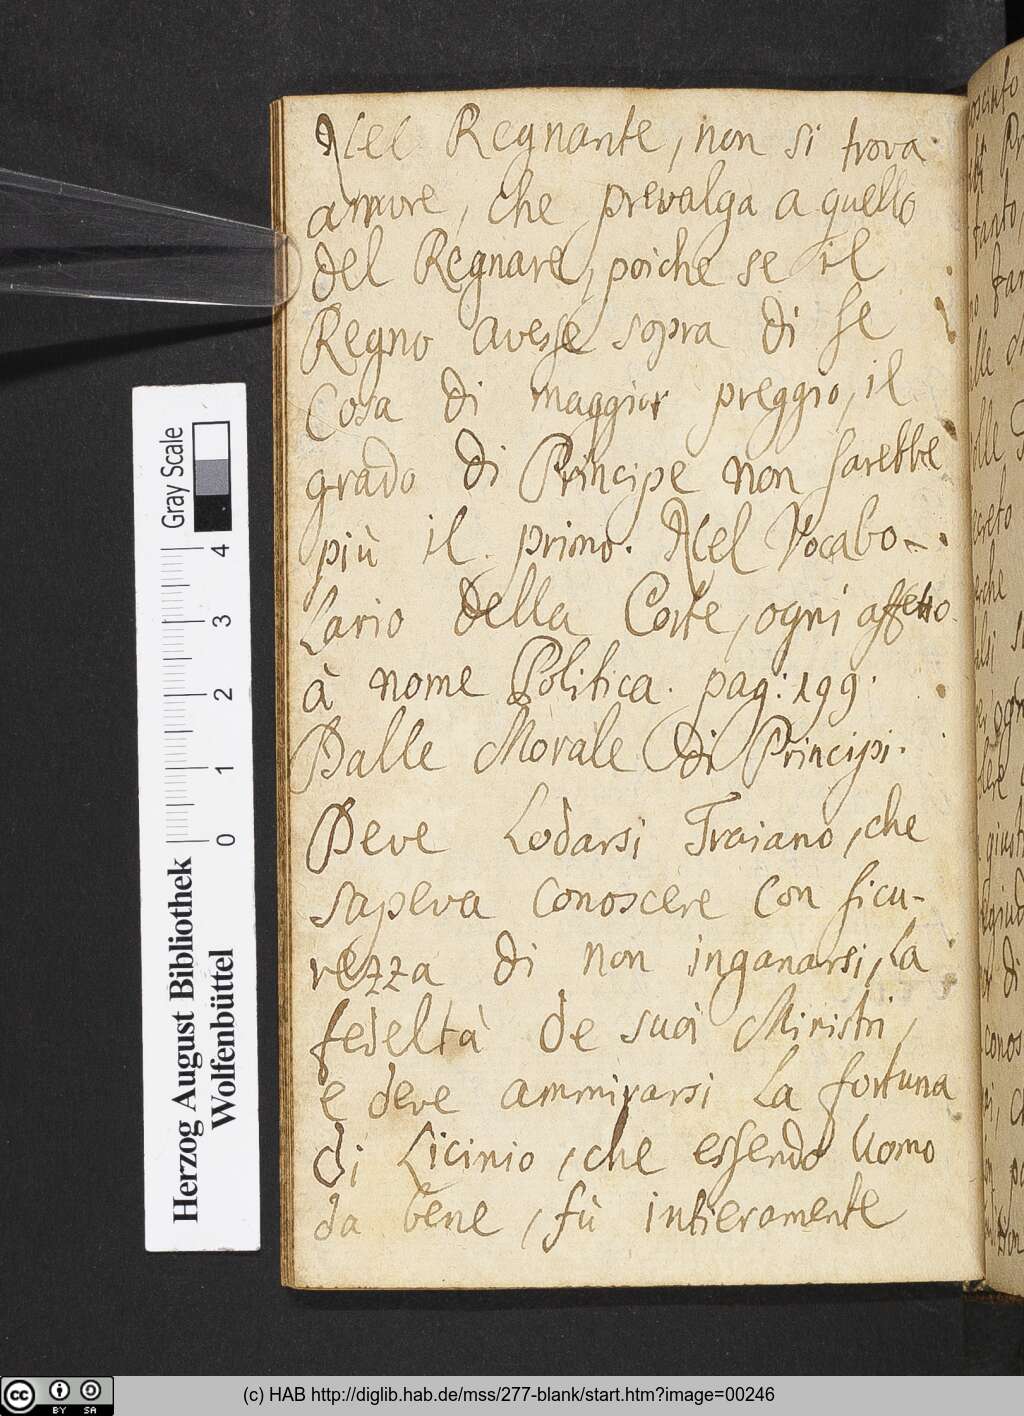 Nel Regnante, non si trova
amore, che prevalga a quello
del Regnare, poiche se il
Regno avesse sopra di se
Cosa di maggior preggio, il
grado di Principe non sarebbe
più il primo. Nel Vocabo-
Lario della Corte, ogni affetto
à nome Politica. pag: 199.
Dalle Morale di Principi.
Deve Lodarsi Traiano, che
sapeva conoscere con sicu-
rezza di non inganarsi, La
fedeltà de suoi Ministri,
e deve ammirarsi La fortuna
di Licinio, che essendo Uomo
da bene, fù intieramente
Gray Scale
0 1 2 3 4
Herzog August Bibliothek
Wolfenbüttel
cc BY SA
(c) HAB http://diglib.hab.de/mss/277-blank/start.htm?image=00246